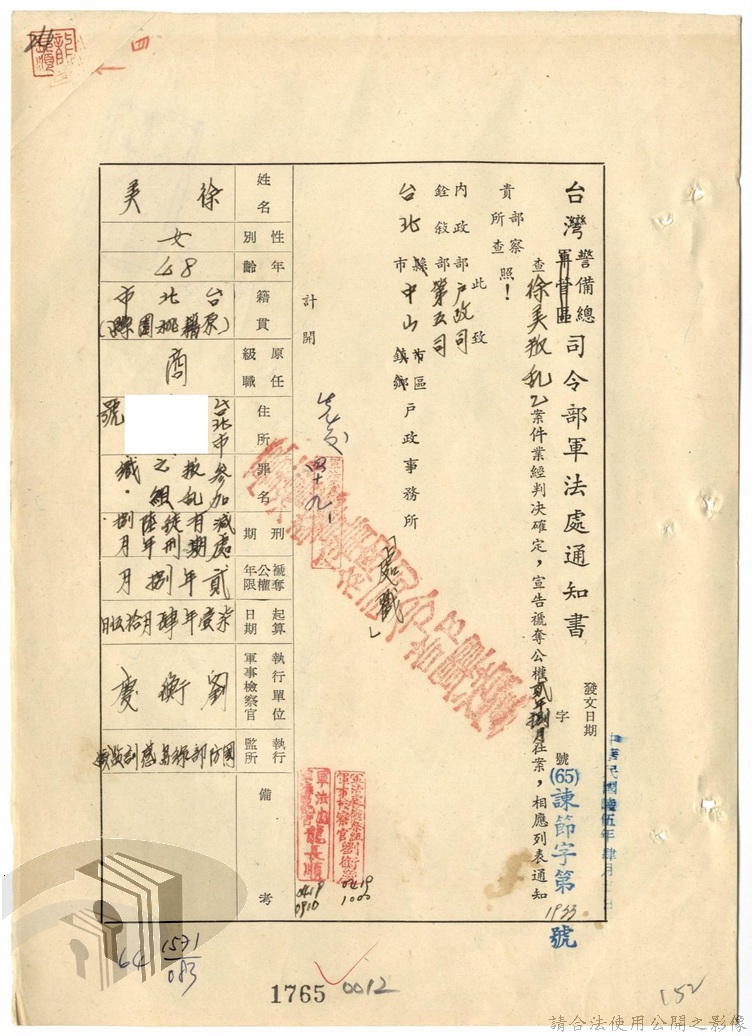 台灣警備總司令部軍法處通知書
軍管區
發文日期
中華民國陸伍年肆月
字號
(65)諫節字第1933號
查徐美叛乱乙案件業經判决確定，宣告褫奪公權貳年捌月在案，相應列表通知
貴部察照！
所查
此致
內政部户政司
銓敘部第五司
台北縣市中山市區鎮鄉户政事務所
「處戳」
計開
姓名
徐美
性別
女
年齡
48
籍貫
台北市
(原籍桃園縣)
原任級職
商
住所
台北市
號
罪名
參加叛乱之組織．
刑期
減處有期徒刑陸年捌月
褫奪公權年限
貳年捌月
起算日期
柒壹年肆月拾伍日
執行單位軍事檢察官
劉衡慶
執行監所
國防部綠島感訓監獄
備考
軍法官龍長順
0419
0910
0419
1000
四
64
1571
083
1765
0012
152
請合法使用公開之影像